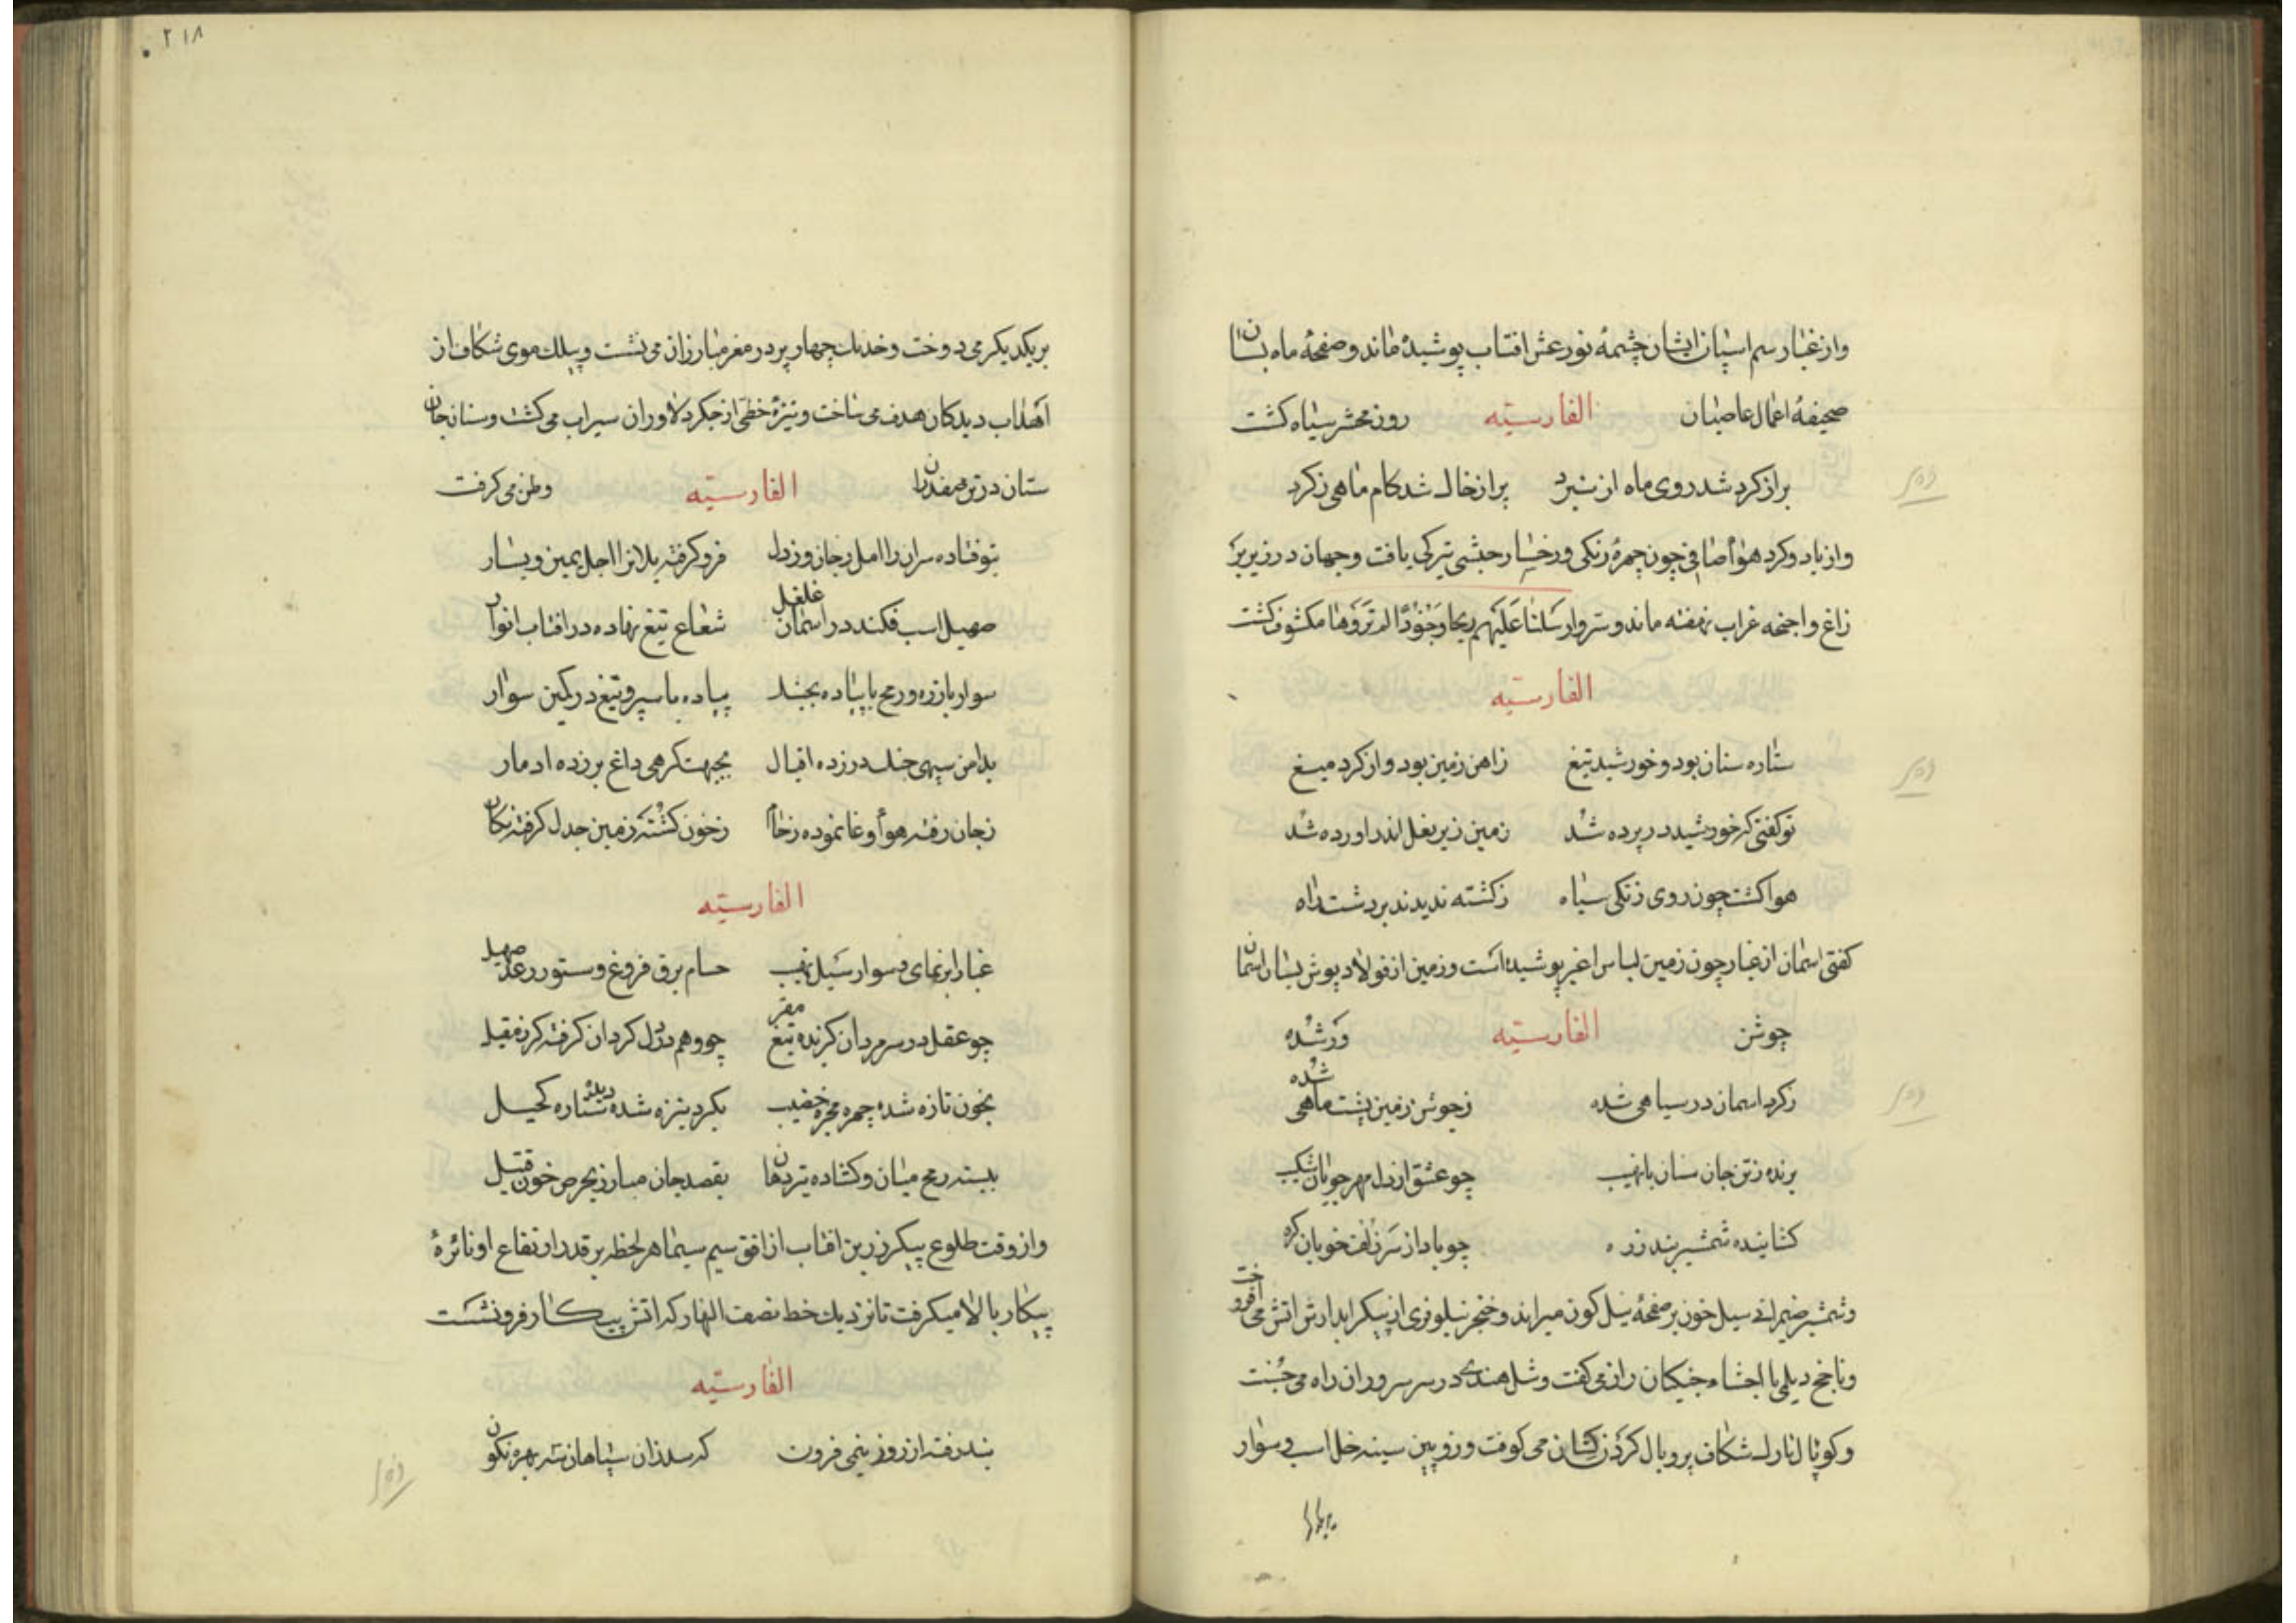 واز غبار سم اسپان ایشان چشمهٔ نور عش افتاب پوشیده ماند و صفحهٔ ماه بسان
صحیفهٔ اعمال عاصیان الفارسیّه روز محشر سیاه کشت
براز کرد شد روی ماه از نبرد پر از خاک شد کام ماهی ز کرد
واز باد و کرد هوأ صافی چون چهرهٔ زنکی و رخسار حبشی تیرکی یافت و جهان در زیر پر
زاغ و اجنحه غراب نهفته ماند و سر وارسلنا علیهم ریحا وجنودًا لم تروها مکشوف کشت
الفارسیّه
ستاره سنان بود و خورشید تیغ ز اهن زمین بود و از کرد میغ
تو کفتی که خورشید در پرده شد زمین زیر نعل اندر اورده شد
هوا کشت چون روی زنکی سیاه ز کشته ندیدند بر دشت راه
کفتی اسمان از غبار چون زمین لباس اغبر پوشیده است و زمین از فولاد پوش بسان اسمان
جوشن الفارسیّه ور شده
ز کرد اسمان در سیاهی شده ز جوشن زمین پشت ماهی شده
برنده ز تن جان سنان با نهیب چو عشق از دل مهرجویان شکیب
کشاینده شمشیر بند زره چو باد از سر زلف خوبان کره
وشمشیر ضیمرانی سیل خون بر صفحهٔ نیل کون میراند و خنجر نیلوفری از پیکر ابدارش اتش می افروخت
وناجخ دیلمی با احشاء جنکیان راز می کفت و شل هندی در سر سروران راه می جست
وکوپال تارک شکاف بر و یال کردن کشان می کوفت و زوبین سینه خل اسب و سوار
بریکدیکر
۲۱۸
بر یکدیکر می دوخت و خدنک چهار پر در مغر مبارزان می نشست و بیلک موی شکاف از
اهداب دیدکان هدف می ساخت و نیزهٔ خطی از جکر دلاوران سیراب می کشت و سنان جان
ستان در تن صفدران الفارسیّه وطن می کرفت
فروکرفته یلانرا اجل یمین و یسار
صهیل اسب فکنده در اسمان غلغل شعاع تیغ نهاده در افتاب انوار
سوار با زره و رمح با پیاده بجنک پیاده با سپر و تیغ در کمین سوار
بدامن سپهی چنک در زده اقبال بجبهت کرهی داغ بر زده ادبار
ز خون کشته زمین جدل کرفته نکار
الفارسیّه
غبار ابرنمای و سوار سیل نهیب حسام برق فروغ و ستور رعد صهیل
چو عقل در سر مردان کزیده تیغ مقر چو وهم در دل کردان کرفته کرز مقیل
بخون تازه شده چهره مجره خضیب بکرد نیزه شده دیدهٔ ستاره کحیل
ببسته رمح میان و کشاده تیر دهان بقصد جان مبارز بحرص خون قتیل
واز وقت طلوع پیکر زرین افتاب از افق سیم سیما هر لحظه بر قدر ارتفاع او نائرهٔ
پیکار بالا میکرفت تا نزدیک خط نصف النهار که اتش پیکار فرو نشست
الفارسیّه